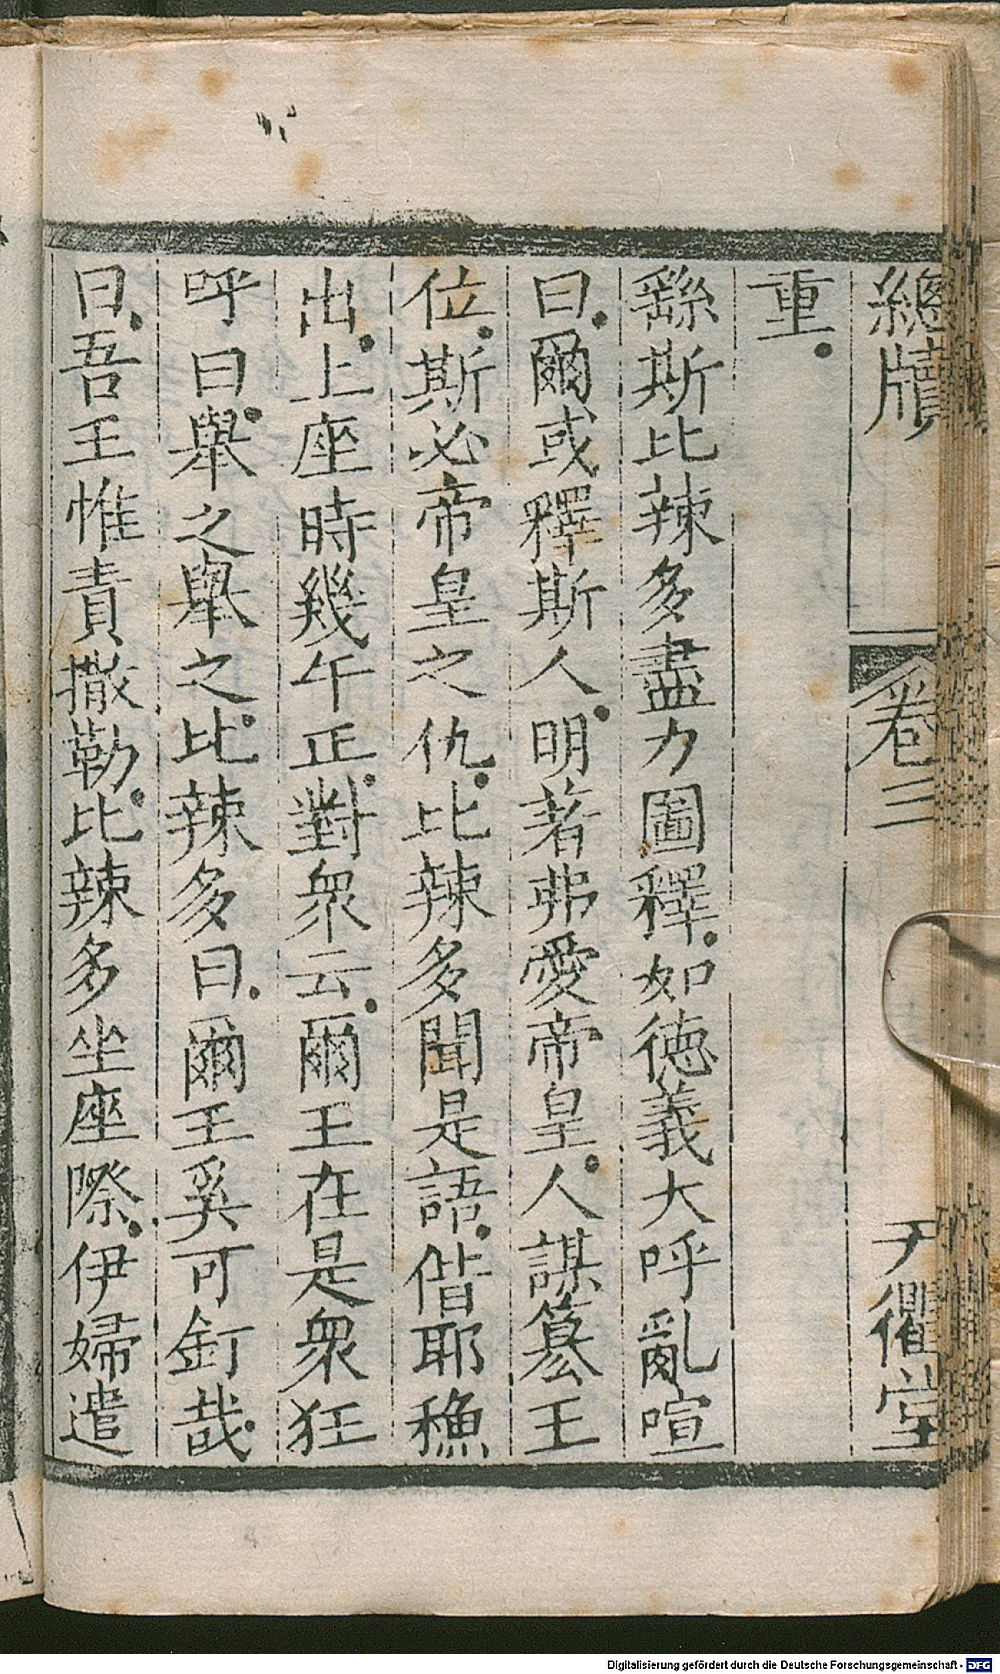 總牘 卷三 尹衢堂
重
繇斯比辣多盡力圖釋如德義大呼亂喧
曰爾或釋斯人明著弗愛帝皇人謀篡王
位斯必帝皇之仇比辣多聞是語偕耶穌
出上座時幾午正對衆云爾王在是衆狂
呼曰舉之舉之比辣多曰爾王奚可釘哉
曰吾王惟責撒勒比辣多坐座際伊婦遣
Digitalisierung gefördert durch die Deutsche Forschungsgemeinschaft - DFG